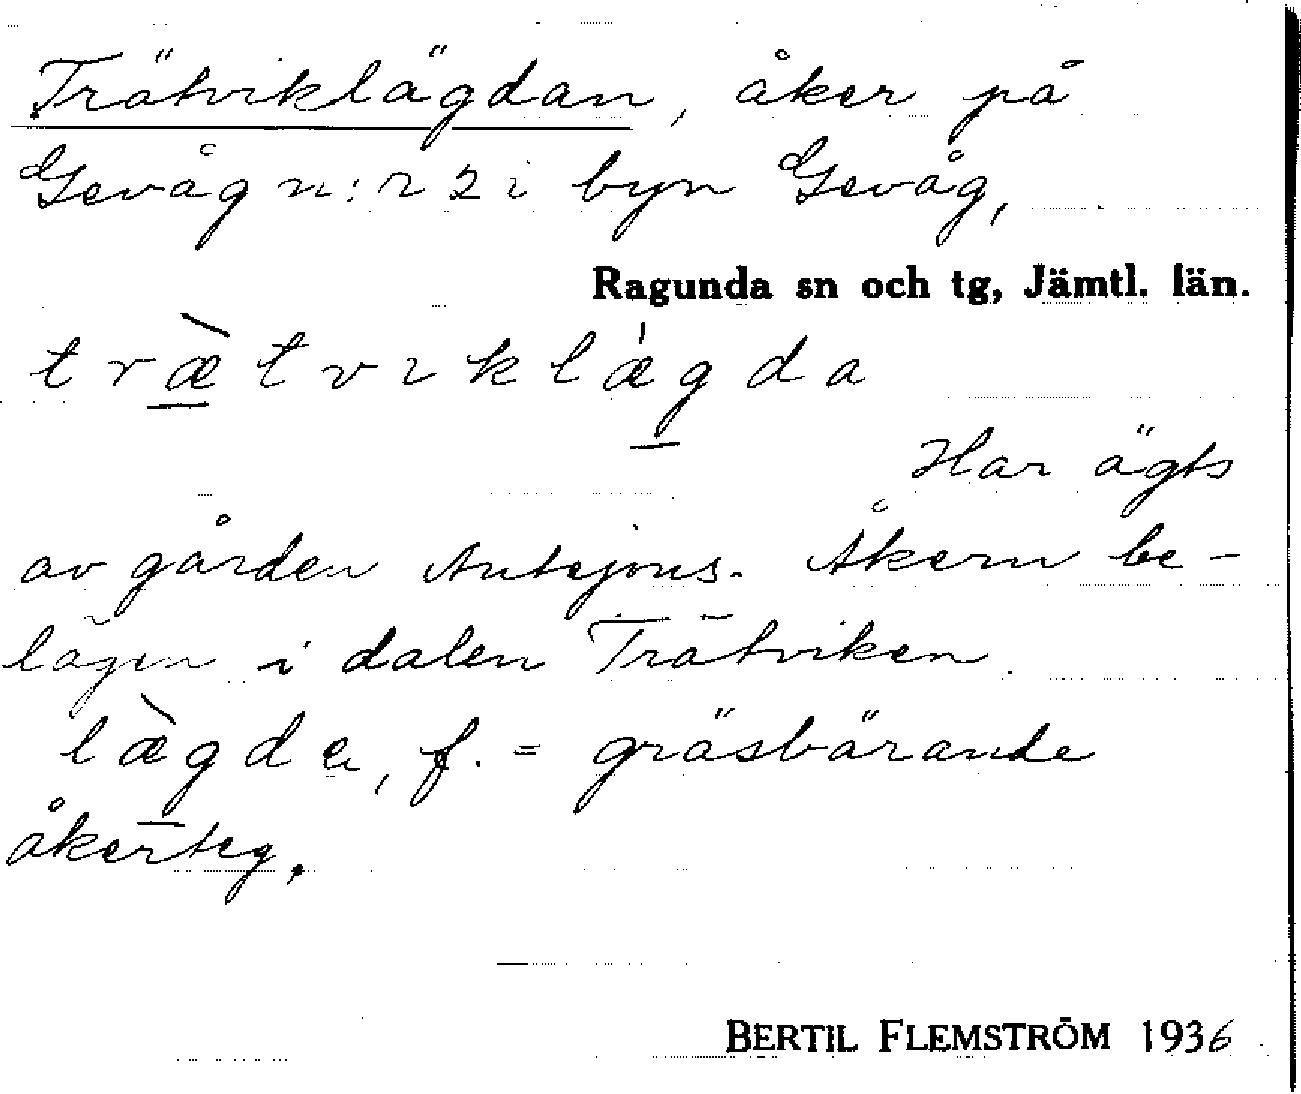 Trätviklägdan, åker på
Gevåg n:r 2 i byn Gevåg,
Ragunda sn och tg, Jämtl. län.
træ̀tvıklǽgda
Har ägts
av gården Antejons. Åkern be-
lägen i dalen Trätviken.
læ̀gda, f. = gräsbärande
åkerteg.
BERTIL FLEMSTRÖM 1936